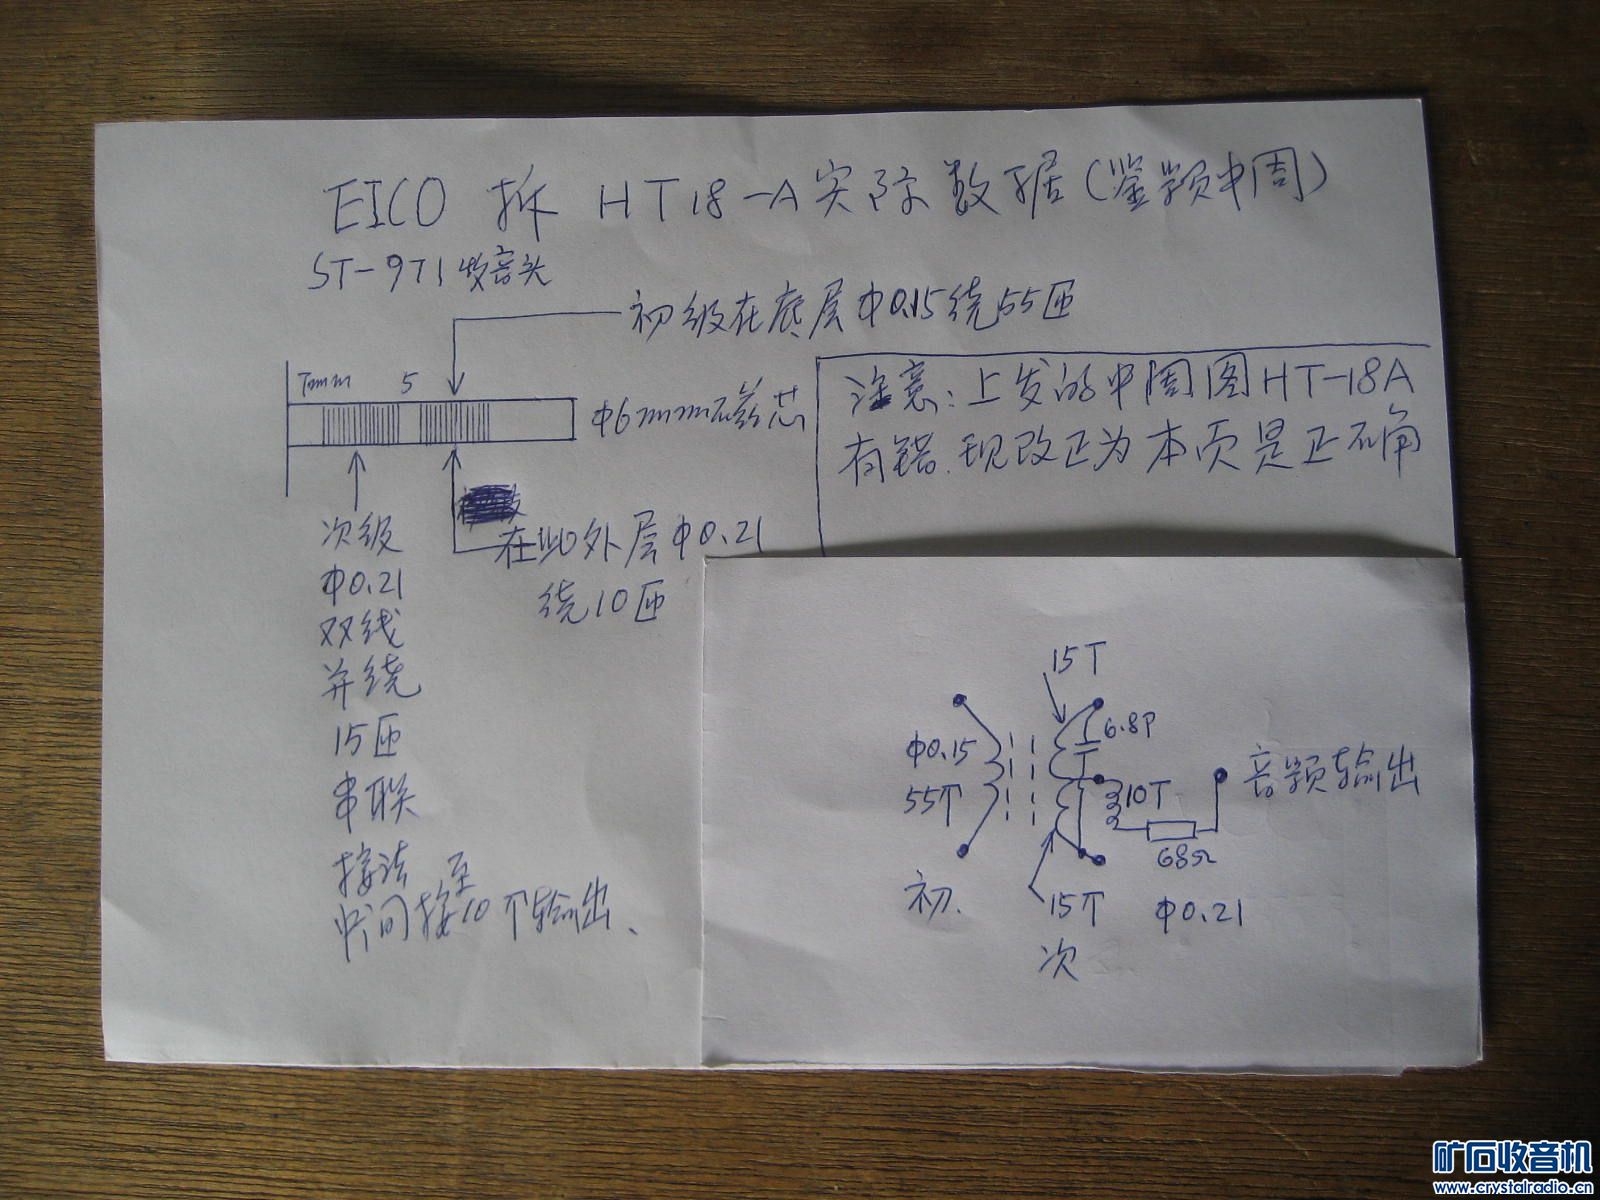 EICO 拆 HT18-A实际数据(鉴频中周)
ST-97T1收音头
初级在底层Φ0.15绕55匝
7mm 5
Φ6mm磁芯
注意:上发的中周图HT-18A
有错.现改正为本页是正确
次级
Φ0.21
双线
并绕
15匝
串联
接法
中间接至10T输出、
在此外层Φ0.21
绕10匝
15T
6.8P
Φ0.15
55T
10T
音频输出
68Ω
初.
15T
Φ0.21
次
矿石收音机
www.crystalradio.cn